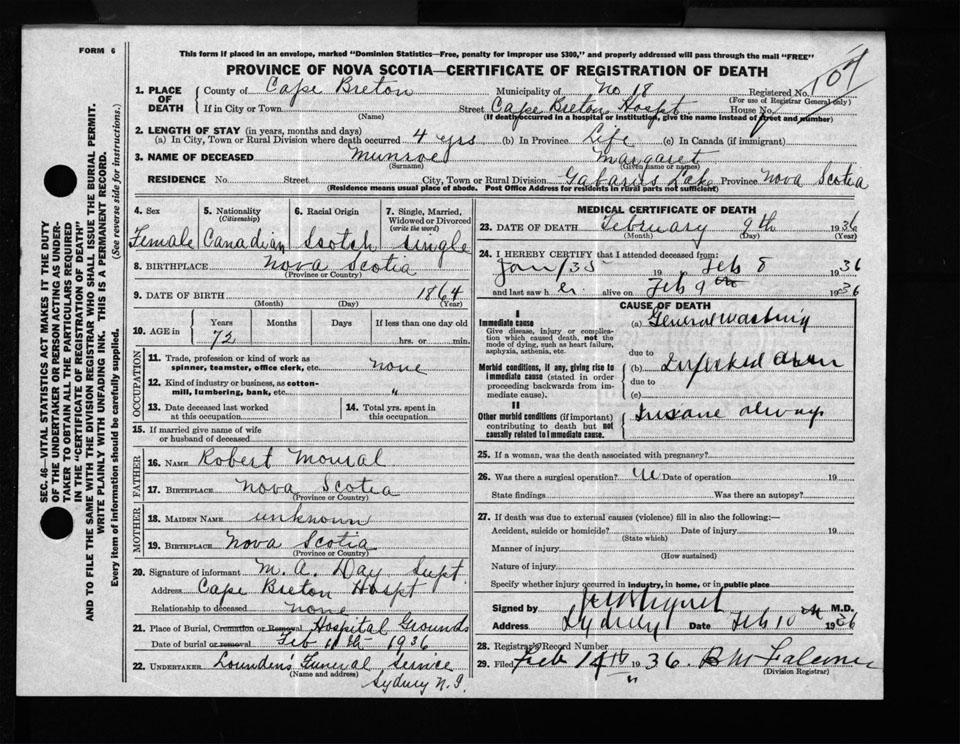 FORM 6
This form if placed in an envelope, marked "Dominion Statistics—Free, penalty for improper use $300," and properly addressed will pass through the mail "FREE"
PROVINCE OF NOVA SCOTIA—CERTIFICATE OF REGISTRATION OF DEATH
1. PLACE OF DEATH County of Cape Breton Municipality of No 18 Registered No.
(For use of Registrar General only)
If in City or Town Street Cape Breton Hospt House No.
(Name) (If death occurred in a hospital or institution, give the name instead of street and number)
2. LENGTH OF STAY (in years, months and days)
(a) In City, Town or Rural Division where death occurred 4 yrs (b) In Province Life (c) In Canada (if immigrant)
3. NAME OF DECEASED Munroe Margaret
(Surname) (Given name or names)
RESIDENCE No. Street City, Town or Rural Division Gabarus Lake Province Nova Scotia
(Residence means usual place of abode. Post Office Address for residents in rural parts not sufficient)
SEC. 46—VITAL STATISTICS ACT MAKES IT THE DUTY
OF THE UNDERTAKER OR PERSON ACTING AS UNDER-
TAKER TO OBTAIN ALL THE PARTICULARS REQUIRED
IN THE "CERTIFICATE OF REGISTRATION OF DEATH"
AND TO FILE THE SAME WITH THE DIVISION REGISTRAR WHO SHALL ISSUE THE BURIAL PERMIT.
WRITE PLAINLY WITH UNFADING INK. THIS IS A PERMANENT RECORD.
Every item of information should be carefully supplied. (See reverse side for instructions.)
4. Sex 5. Nationality (Citizenship) 6. Racial Origin 7. Single, Married, Widowed or Divorced (write the word)
Female Canadian Scotch Single
8. BIRTHPLACE Nova Scotia
(Province or Country)
9. DATE OF BIRTH 1864
(Month) (Day) (Year)
10. AGE in Years Months Days If less than one day old
72 hrs. or min.
OCCUPATION
11. Trade, profession or kind of work as spinner, teamster, office clerk, etc. none
12. Kind of industry or business, as cotton-mill, lumbering, bank, etc. "
13. Date deceased last worked at this occupation. 14. Total yrs. spent in this occupation.
15. If married give name of wife or husband of deceased
FATHER
16. NAME Robert
17. BIRTHPLACE Nova Scotia
(Province or Country)
MOTHER
18. MAIDEN NAME unknown
19. BIRTHPLACE Nova Scotia
(Province or Country)
20. Signature of informant M. A. Day Supt.
Address Cape Breton Hospt
Relationship to deceased none
21. Place of Burial, Cremation or Removal Hospital Grounds
Date of burial or removal Feb 11th 1936
22. UNDERTAKER Lounden's Funeral Service
(Name and address) Sydney N.S.
MEDICAL CERTIFICATE OF DEATH
23. DATE OF DEATH February 9th 1936
(Month) (Day) (Year)
24. I HEREBY CERTIFY that I attended deceased from:
19 to Feb 8 1936
and last saw her alive on Feb 9th 1936
CAUSE OF DEATH
I
Immediate cause
Give disease, injury or complication which caused death, not the mode of dying, such as heart failure, asphyxia, asthenia, etc.
(a) General wasting
due to
Morbid conditions, if any, giving rise to immediate cause (stated in order proceeding backwards from immediate cause).
(b)
due to
(c)
II
Other morbid conditions (if important) contributing to death but not causally related to immediate cause.
Insane always
25. If a woman, was the death associated with pregnancy?
26. Was there a surgical operation? Date of operation 19
State findings Was there an autopsy?
27. If death was due to external causes (violence) fill in also the following:—
Accident, suicide or homicide? Date of injury 19
(State which)
Manner of injury
(How sustained)
Nature of injury
Specify whether injury occurred in industry, in home, or in public place
Signed by M.D.
Address Sydney Date Feb 10th 1936
28. Registrar's Record Number
29. Filed Feb 14th 1936. B M Falconer
(Division Registrar)